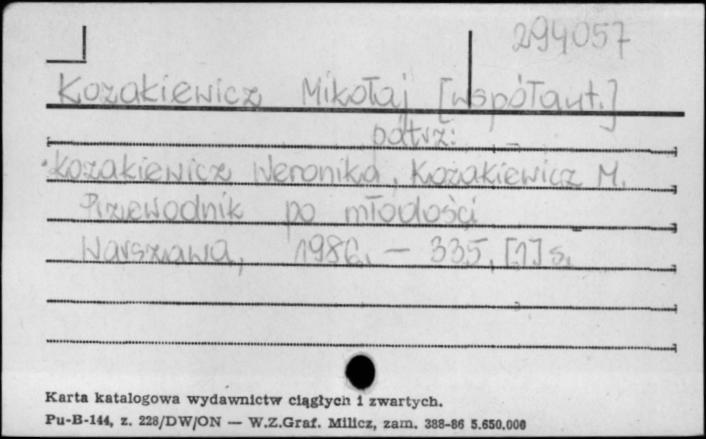 294057
Kozakiewicz Mikołaj [współaut.]
patrz:
Kozakiewicz Weronika, Kozakiewicz M.
Przewodnik po młodości
Warszawa, 1986. — 335, [1] s.
Karta katalogowa wydawnictw ciągłych i zwartych.
Pu-B-144, z. 228/DW/ON — W.Z.Graf. Milicz, zam. 388-86 5.650.000